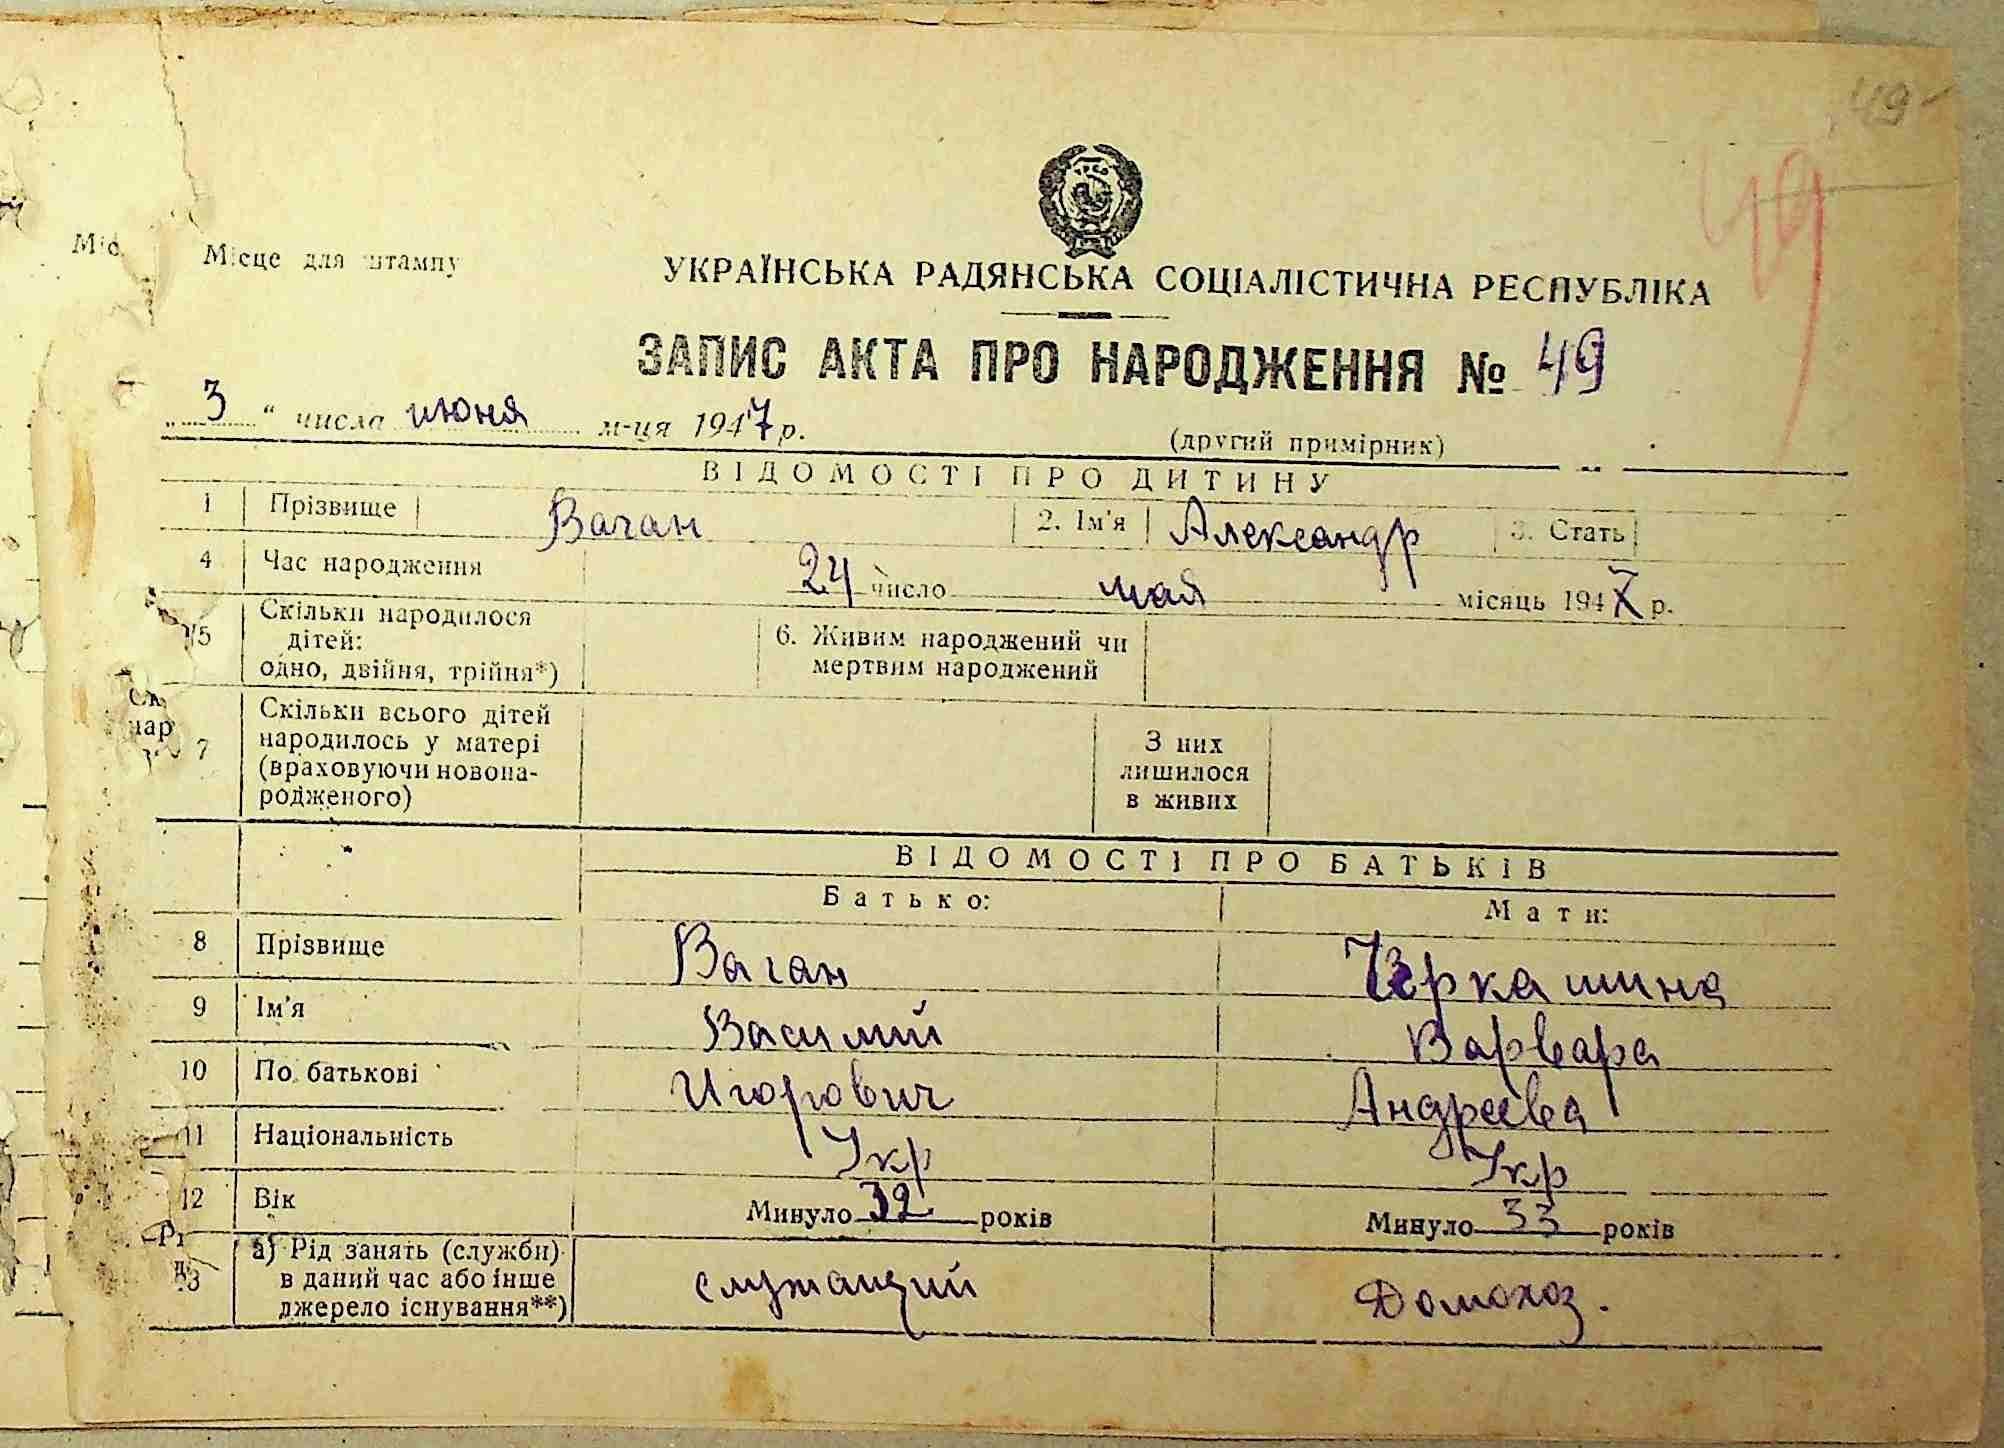 49
49
Місце для штампу
УКРАЇНСЬКА РАДЯНСЬКА СОЦІАЛІСТИЧНА РЕСПУБЛІКА
ЗАПИС АКТА ПРО НАРОДЖЕННЯ № 49
„ 3 “ числа июня м-ця 1947 р.
(другий примірник)
ВІДОМОСТІ ПРО ДИТИНУ
1 Прізвище Ваган 2. Ім'я Александр 3. Стать
4 Час народження 24 число мая місяць 1947 р.
5 Скільки народилося
дітей:
одно, двійня, трійня*)
6. Живим народжений чи
мертвим народжений
7 Скільки всього дітей
народилось у матері
(враховуючи новона-
родженого)
З них
лишилося
в живих
ВІДОМОСТІ ПРО БАТЬКІВ
Батько: Мати:
8 Прізвище Ваган Черкашина
9 Ім'я Василий Варвара
10 По батькові Игорович Андреева
11 Національність Укр Укр
12 Вік Минуло 32 років Минуло 33 років
13 а) Рід занять (служби)
в даний час або інше
джерело існування**)
служащий Домохоз.